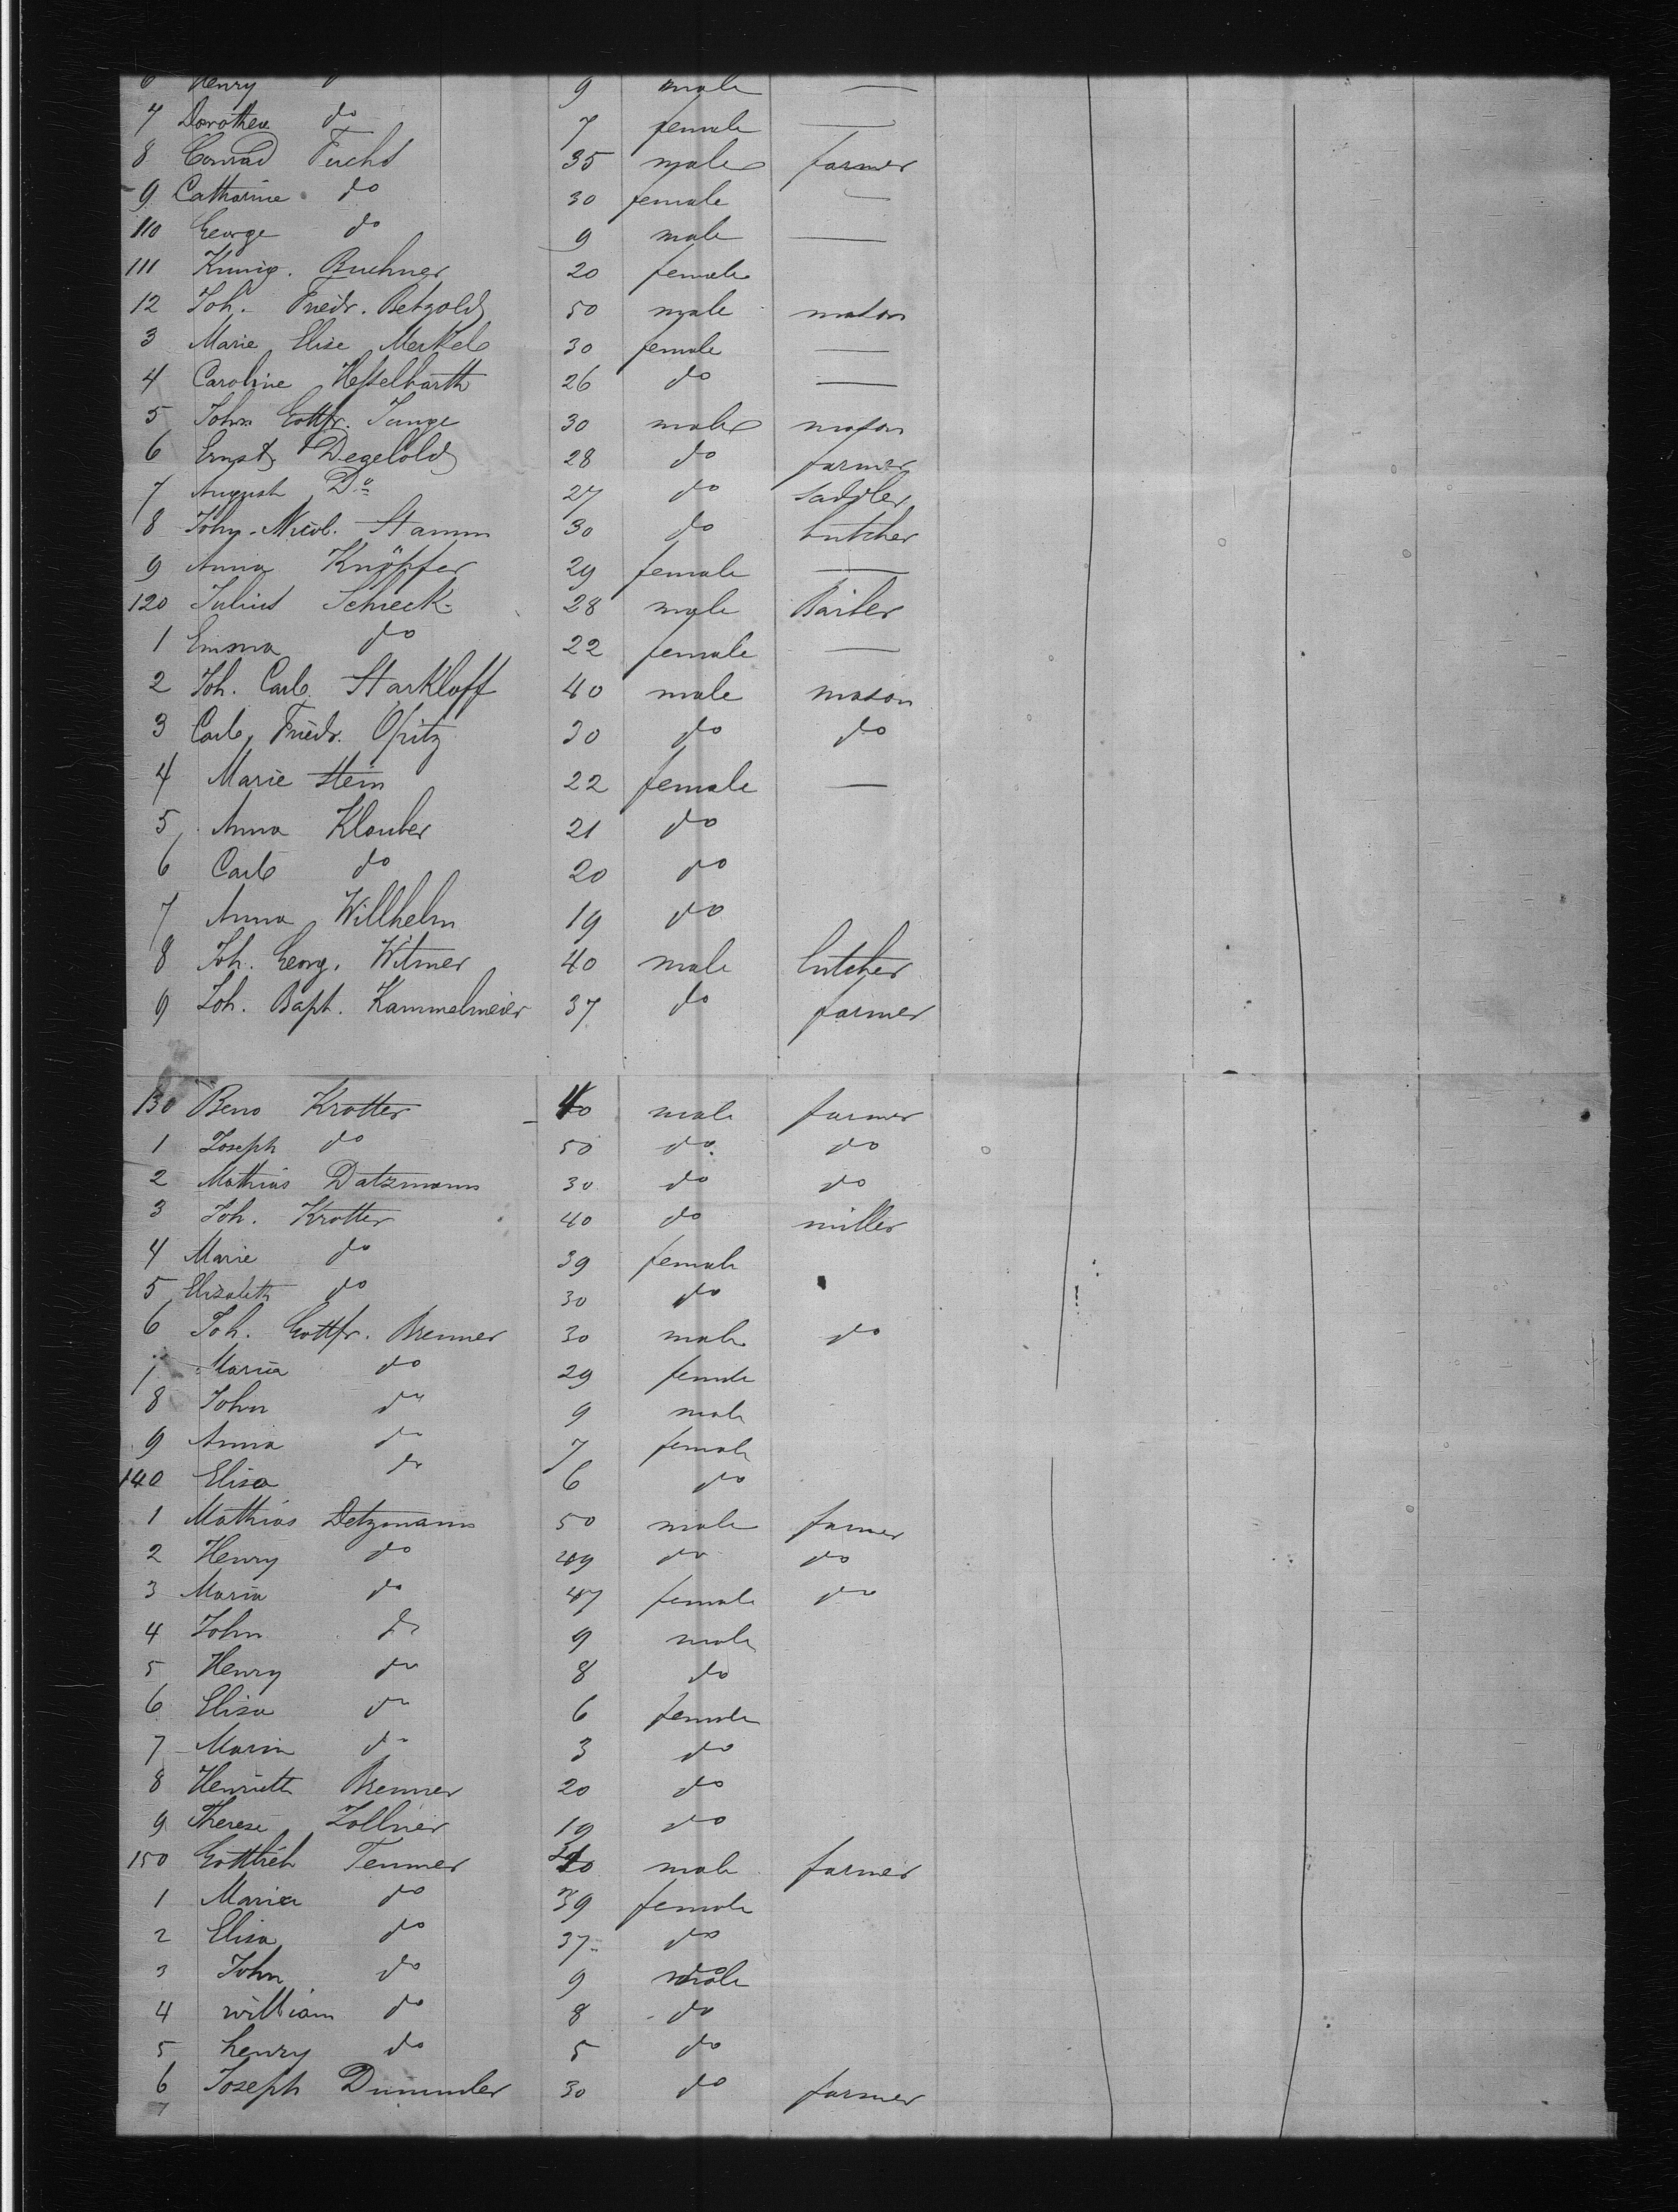 6 Henry do 9 male —
7 Dorothea do 7 female —
8 Conrad Fuchs 35 male farmer
9 Catharine do 30 female —
110 George do 9 male —
111 Kunig. Buchner 20 female
12 Joh. Friedr. Betzold 50 male mason
3 Marie Elise Merkel 30 female —
4 Caroline Hesselbarth 26 do —
5 John Gottfr. Junge 30 male mason
6 Ernst Degelold 28 do farmer
7 August Do 27 do saddler
8 John Nicol. Stamm 30 do butcher
9 Anna Knöpfer 29 female —
120 Julius Schreck 28 male Barber
1 Emma do 22 female —
2 Joh. Carl Starkloff 40 male mason
3 Carl Friedr. Opitz 30 do do
4 Marie Stein 22 female —
5 Anna Klauber 21 do
6 Carl do 20 do
7 Anna Willhelm 19 do
8 Joh. Georg. Witmer 40 male butcher
9 Joh. Bapt. Kammelmeier 37 do farmer
130 Beno Krotter 40 male farmer
1 Joseph do 50 do do
2 Mathias Datzmann 30 do do
3 Joh. Krotter 40 do miller
4 Marie do 39 female
5 Elizabeth do 30 do
6 Joh. Gottfr. Brenner 30 male do
7 Maria do 29 female
8 John do 9 male
9 Anna do 7 female
140 Elisa do 6 do
1 Mathias Detzmann 50 male farmer
2 Henry do 49 do do
3 Maria do 47 female do
4 John do 9 male
5 Henry do 8 do
6 Elisa do 6 female
7 Maria do 3 do
8 Henrietta Brenner 20 do
9 Therese Zollner 19 do
150 Gottlieb Temmer 40 male farmer
1 Maria do 39 female
2 Elisa do 37 do
3 John do 9 male
4 william do 8 do
5 henry do 5 do
6 Joseph Dummler 30 do farmer
7